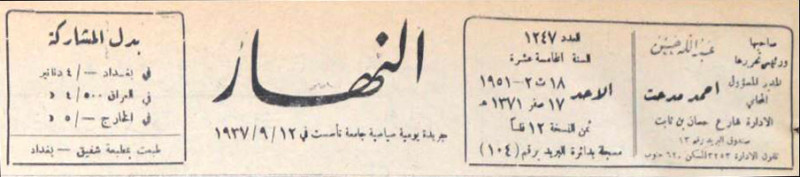 صاحبها
ورئيس تحريرها
عبدالله حسين
المدير المسؤول
المحامي
احمد مدحت
الادارة شارع حسان بن ثابت
صندوق البريد رقم ١٣
تلفون الادارة ٣٢٥٣ السكن
العدد ١٢٤٧
السنة الخامسة عشرة
الاحد
١٨ ت٢-١٩٥١
١٧ صفر ١٣٧١ هـ
ثمن النسخة ١٢ فلساً
مسجلة بدائرة البريد برقم (١٠٤)
النهار
جريدة يومية سياسية جامعة تأسست في ١٩٣٧/٩/١٢
بدل المشاركة
في بغداد -/٤ دنانير
في العراق ٤/٥٠٠ د
في الخارج -/٥ د
طبعت بمطبعة شفيق - بغداد